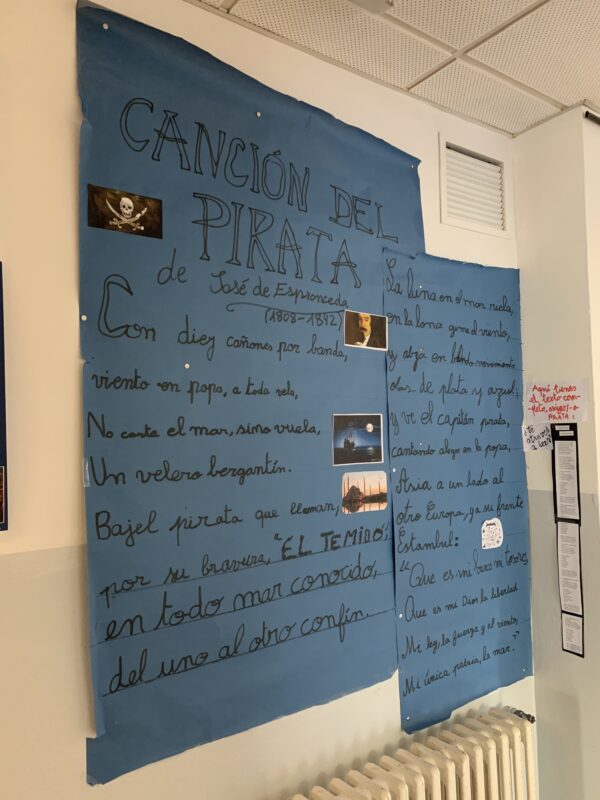 CANCIÓN DEL
PIRATA
de José de Espronceda
(1808-1842)
Con diez cañones por banda,
viento en popa, a toda vela,
No corta el mar, sino vuela,
Un velero bergantín.
Bajel pirata que llaman,
por su bravura, "EL TEMIDO",
en todo mar conocido,
del uno al otro confín.
La luna en el mar riela,
en la lona gime el viento,
y alza en blando movimiento
olas de plata y azul;
y ve el capitán pirata,
cantando alegre en la popa,
Asia a un lado al
otro Europa, y a su frente
Estambul:
"Que es mi barco mi tesoro,
Que es mi Dios la libertad
Mi ley, la fuerza y el viento,
Mi única patria, la mar."
Aquí tienes
el texto com-
pleto, amigo/-a
PIRATA:
¿Te
atreves
a